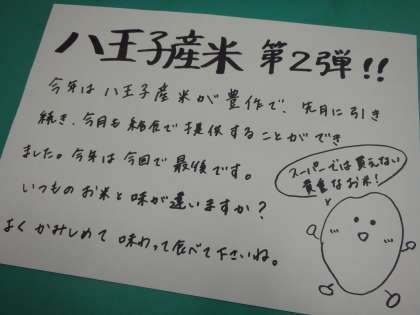 八王子産米 第2弾!!
今年は八王子産米が豊作で、先月に引き
続き、今月も給食で提供することができ
ました。今年は今回で最後です。
いつものお米と味が違いますか?
よくかみしめて味わって食べて下さいね。
スーパーでは買えない
貴重なお米!